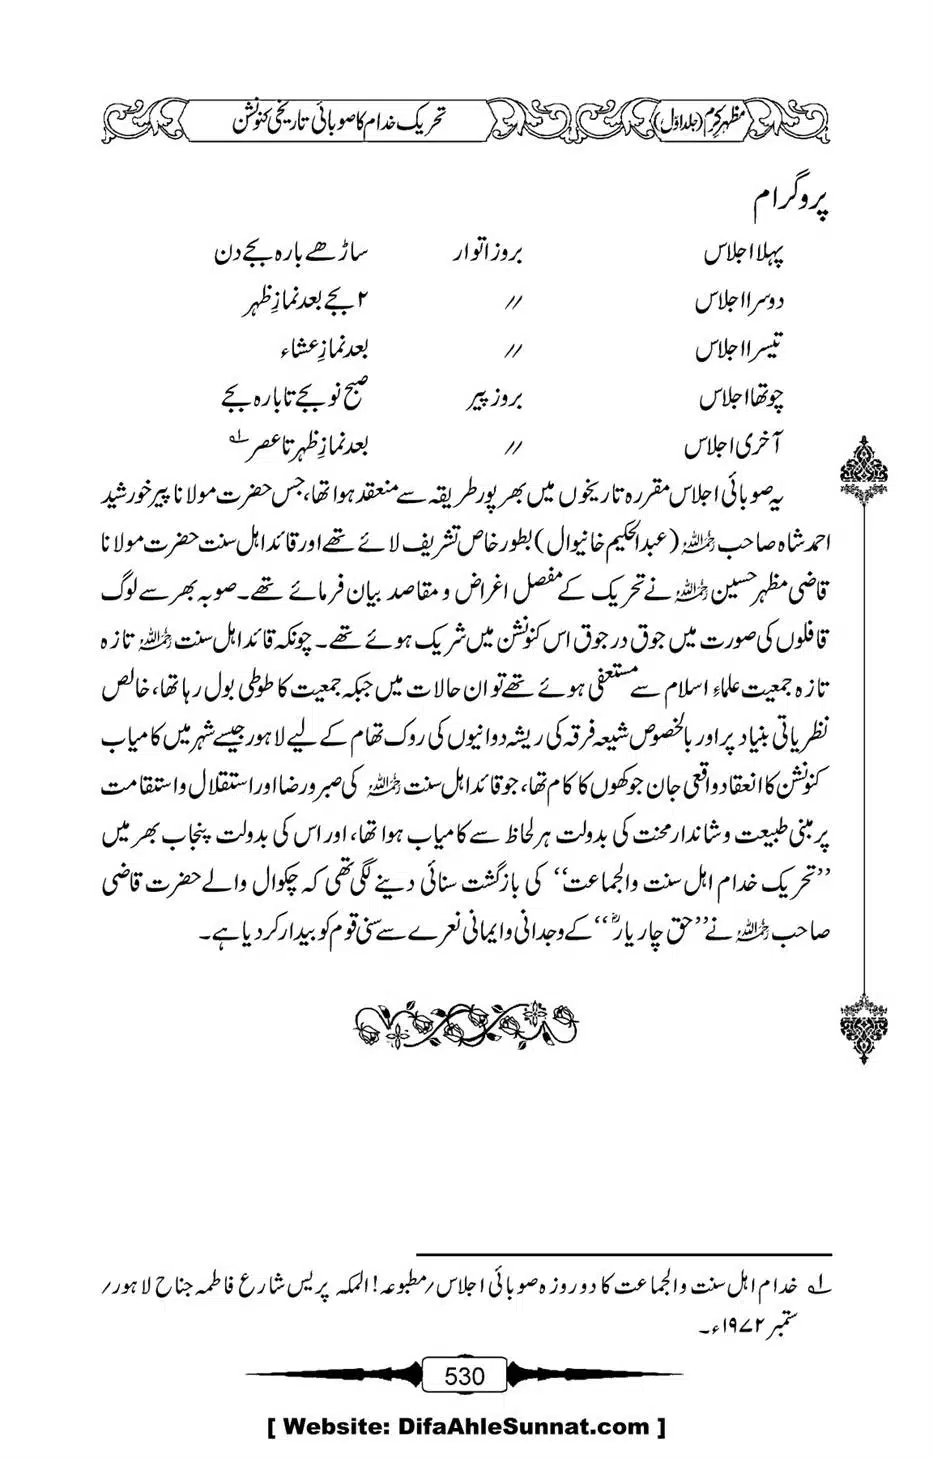 مظہرِ کرم (جلد اوّل)
تحریک خدام کا صوبائی تاریخی کنونشن
پروگرام
پہلا اجلاس بروز اتوار ساڑھے بارہ بجے دن
دوسرا اجلاس // ۲ بجے بعد نمازِ ظہر
تیسرا اجلاس // بعد نمازِ عشاء
چوتھا اجلاس بروز پیر صبح نو بجے تا بارہ بجے
آخری اجلاس // بعد نمازِ ظہر تا عصر ۱؎
یہ صوبائی اجلاس مقررہ تاریخوں میں بھر پور طریقہ سے منعقد ہوا تھا، جس حضرت مولانا پیر خورشید
احمد شاہ صاحب رحمہ اللہ (عبدالحکیم خانیوال) بطور خاص تشریف لائے تھے اور قائد اہل سنت حضرت مولانا
قاضی مظہر حسین رحمہ اللہ نے تحریک کے مفصل اغراض و مقاصد بیان فرمائے تھے۔ صوبہ بھر سے لوگ
قافلوں کی صورت میں جوق در جوق اس کنونشن میں شریک ہوئے تھے۔ چونکہ قائد اہل سنت رحمہ اللہ تازہ
تازہ جمعیت علماءِ اسلام سے مستعفی ہوئے تھے تو ان حالات میں جبکہ جمعیت کا طوطی بول رہا تھا، خالص
نظریاتی بنیاد پر اور بالخصوص شیعہ فرقہ کی ریشہ دوانیوں کی روک تھام کے لیے لاہور جیسے شہر میں کامیاب
کنونشن کا انعقاد واقعی جان جوکھوں کا کام تھا، جو قائد اہل سنت رحمہ اللہ کی صبر و رضا اور استقلال و استقامت
پر مبنی طبیعت و شاندار محنت کی بدولت ہر لحاظ سے کامیاب ہوا تھا، اور اس کی بدولت پنجاب بھر میں
’’تحریک خدام اہل سنت والجماعت‘‘ کی بازگشت سنائی دینے لگی تھی کہ چکوال والے حضرت قاضی
صاحب رحمہ اللہ نے ’’حق چار یارؓ‘‘ کے وجدانی و ایمانی نعرے سے سنی قوم کو بیدار کر دیا ہے۔
۱؎ خدام اہل سنت والجماعت کا دو روزہ صوبائی اجلاس/مطبوعہ! المکہ پریس شارع فاطمہ جناح لاہور/
ستمبر ۱۹۷۲ء۔
530
[ Website: DifaAhleSunnat.com ]